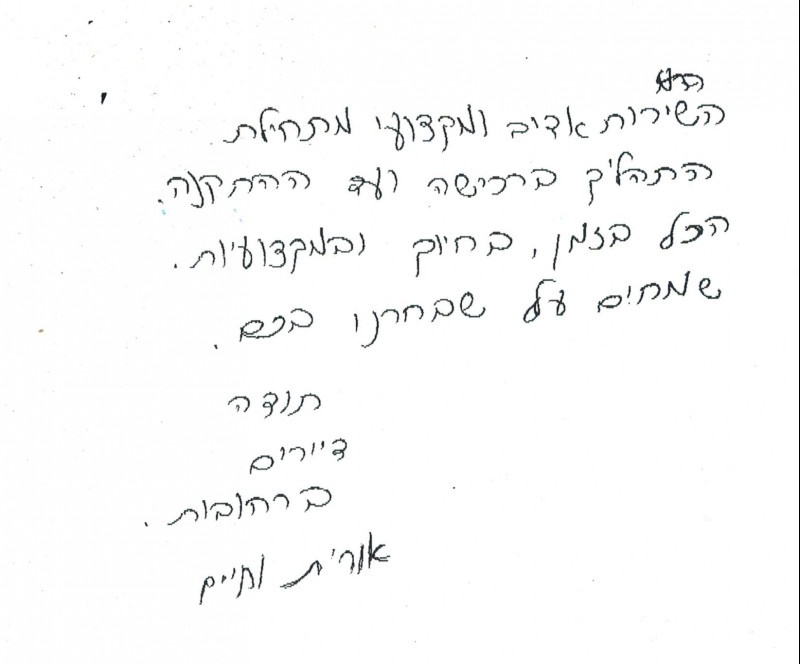 השירות אדיב ומקצועי מתחילת
התהליך ברכישה ועד ההתקנה.
הכל בזמן, בחיוך ובמקצועיות.
שמחים על שבחרנו בכם.
תודה
דיירים
ברחובות.
אורית וחיים